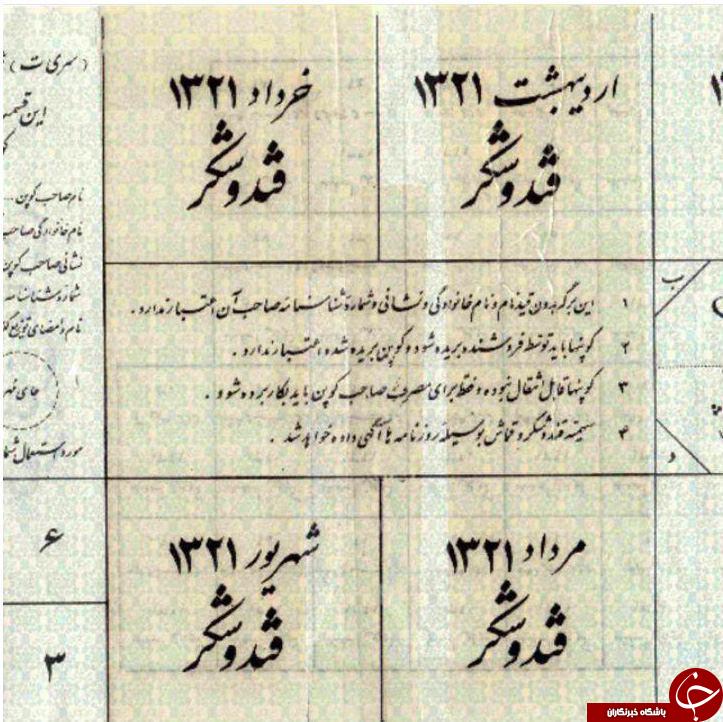 اردیبهشت ۱۳۲۱
قندوشکر
خرداد ۱۳۲۱
قندوشکر
(سری ت)
این قسمت
نام صاحب کوپن
نام خانوادگی صاحب
نشانی صاحب کوپن
شماره شناسنامه
نام و امضای توزیع
جای مهر
مورد استعمال شما
ب
۱ این برگ بدون قید نام و نام خانوادگی و نشانی و شماره شناسنامه صاحب آن اعتبار ندارد.
۲ کوپنها باید توسط فروشنده بریده شود و کوپن بریده شده اعتبار ندارد.
۳ کوپنها قابل انتقال نبوده و فقط برای مصرف صاحب کوپن باید بکار برده شود.
۴ سهمیه قند و شکر و قماش بوسیله روزنامه ها آگهی داده خواهد شد.
د
مرداد ۱۳۲۱
قندوشکر
شهریور ۱۳۲۱
قندوشکر
۶
۳
باشگاه خبرنگاران